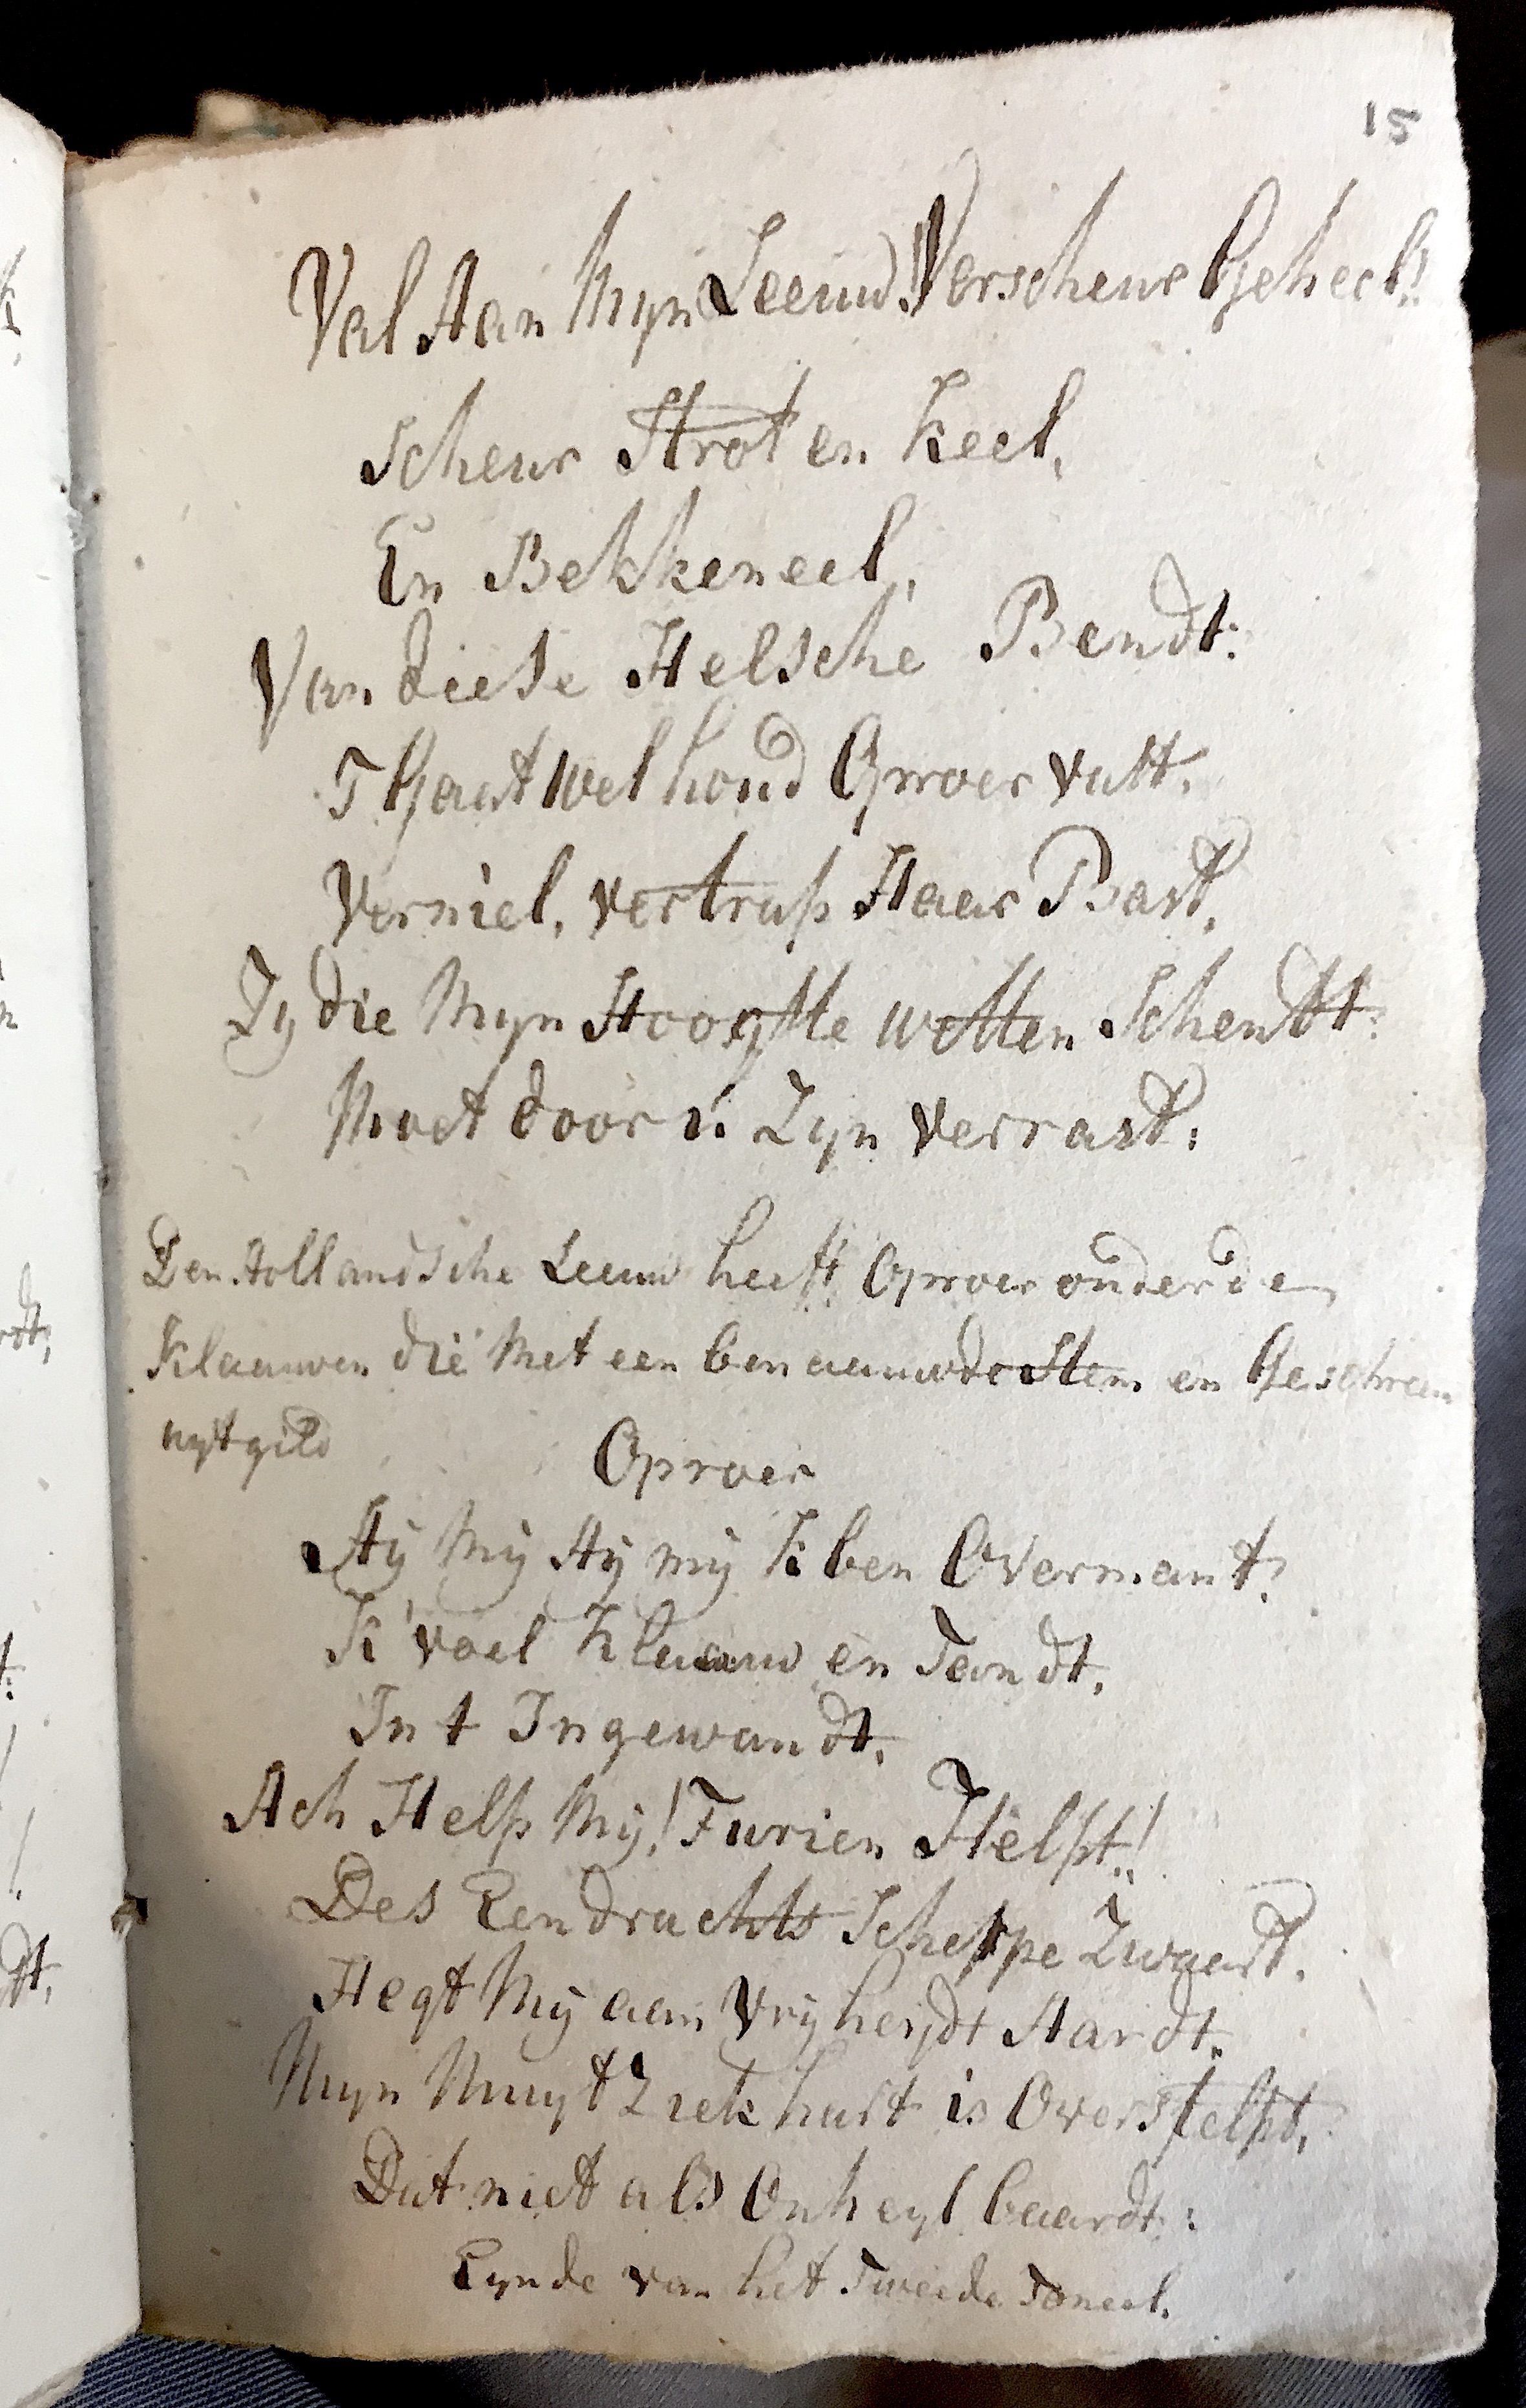 15
Val Aan Myn Leeuw! Verscheur Geheel!
Scheur Strot en Keel,
En Bekkeneel,
Van diese Helsche Bendt:
T Gaat wel houd Oproer vast,
Verniel, vertrap Haar Bast,
Zy die Myn Hoogtte wotten Schendt:
Moet door u Zyn verrast:
Den Hollandsche Leeuw heeft Oproer onder de
Klaauwen die Met een benaauwde Stem en Geschreeu
uytgild
Oproer
Aÿ Mÿ Aÿ mÿ K ben Overmant!
K'voel Klaauw en Tandt,
In t Ingewandt,
Ach Help Mÿ! Furien Helpt!
Des Eendrachts Scherpe Zwaert,
Hegt Mÿ aan Vrÿheydt Hardt,
Myn Muyt Ziek hart is Overstelpt,
Dat niet als Onheyl baardt:
Eynde van het Tweede Toneel.